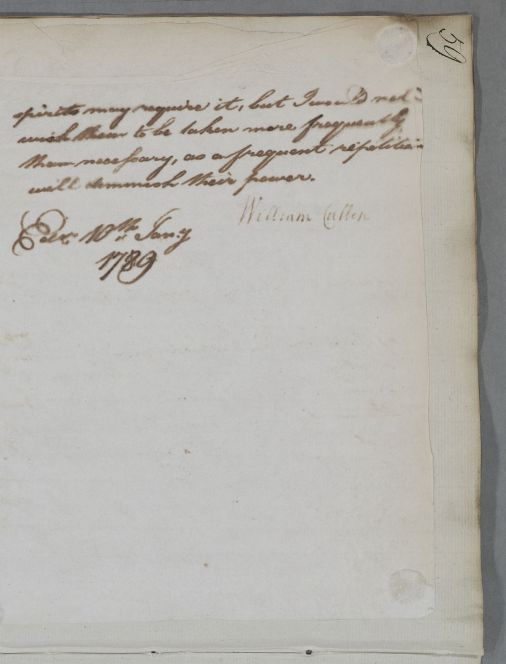 59
spirits may require it, but I would not
wish them to be taken more frequently
than necessary, as a frequent repetition
will diminish their power.
William Cullen
Edinr 10th Jany
1789